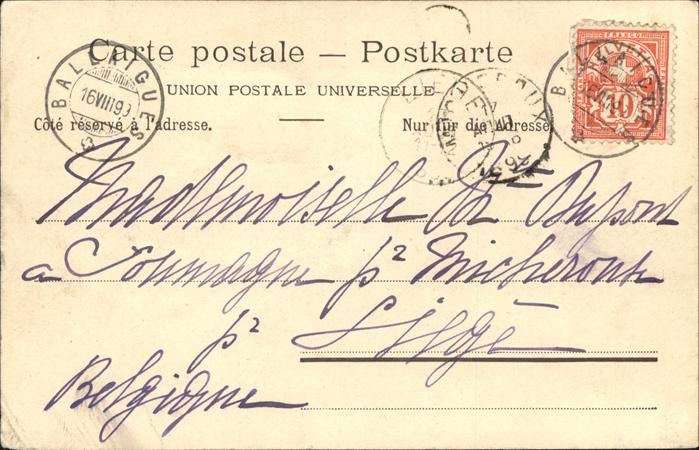 Carte postale — Postkarte
UNION POSTALE UNIVERSELLE
Côté réservé à l'adresse. Nur für die Adresse.
BALLAIGUES
16 VIII 99
FRANCO
10
Mademoiselle Dupont
a Soumagne pr Micheroux
pr Liége
Belgique